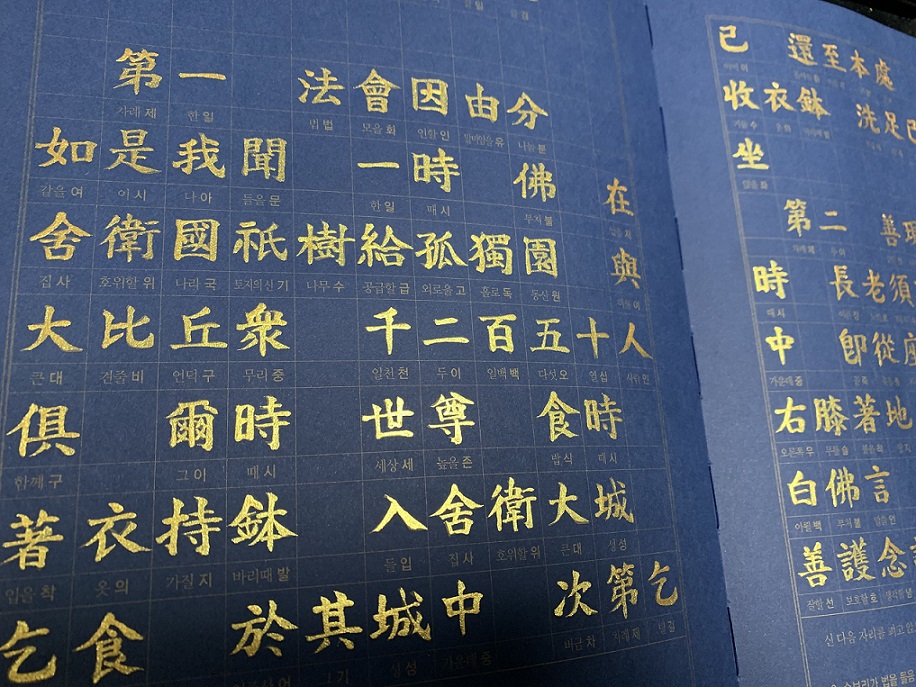 第一 法會因由分
차례 제 한 일 법 법 모을 회 인할 인 말미암을 유 나눌 분
如是我聞 一時 佛 在
같을 여 이 시 나 아 들을 문 한 일 때 시 부처 불
舍衛國祇樹給孤獨園 與
집 사 호위할 위 나라 국 토지의신 기 나무 수 공급할 급 외로울 고 홀로 독 동산 원
大比丘衆 千二百五十人
큰 대 견줄 비 언덕 구 무리 중 일천 천 두 이 일백 백 다섯 오 열 십 사람 인
俱 爾時 世尊 食時
함께 구 그 이 때 시 세상 세 높을 존 밥 식 때 시
著衣持鉢 入舍衛大城
입을 착 옷 의 가질 지 바리때 발 들 입 집 사 호위할 위 큰 대 성 성
乞食 於其城中 次第乞
그 기 성 성 가운데 중 버금 차 차례 제 빌 걸
已 還至本處
收衣鉢 洗足
坐
앉을 좌
第二 善
時 長老須
때 시
中 卽從
가운데 중
右膝著地
오른쪽 우 무릎 슬
白佛言
아뢸 백 부처 불 말씀 언
善護念
잘할 선 보호할 호